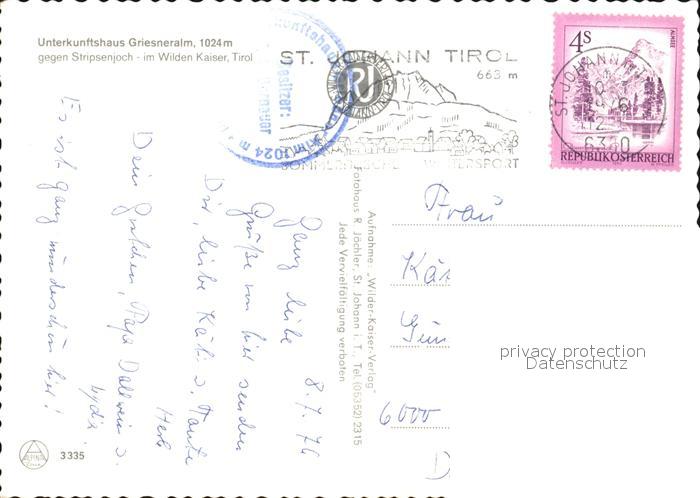 Unterkunftshaus Griesneralm, 1024 m
gegen Stripsenjoch - im Wilden Kaiser, Tirol
ST. JOHANN TIROL
663 m
SOMMERFRISCHE WINTERSPORT
4 S
ALMSEE
REPUBLIK ÖSTERREICH
ST. JOHANN
6380
8.7.76
Ganz liebe
Grüße von hier senden
Dir, liebe Käti u. Tante
Herb
Dein Gretchen, Papa Dallwein u.
Lydia
Es ist ganz wunderschön hier!
Aufnahme: „Wilder-Kaiser-Verlag"
Fotohaus R. Jöchler, St. Johann i. T., Tel. (05352) 2315
Jede Vervielfältigung verboten
Frau
6000
privacy protection
Datenschutz
3335